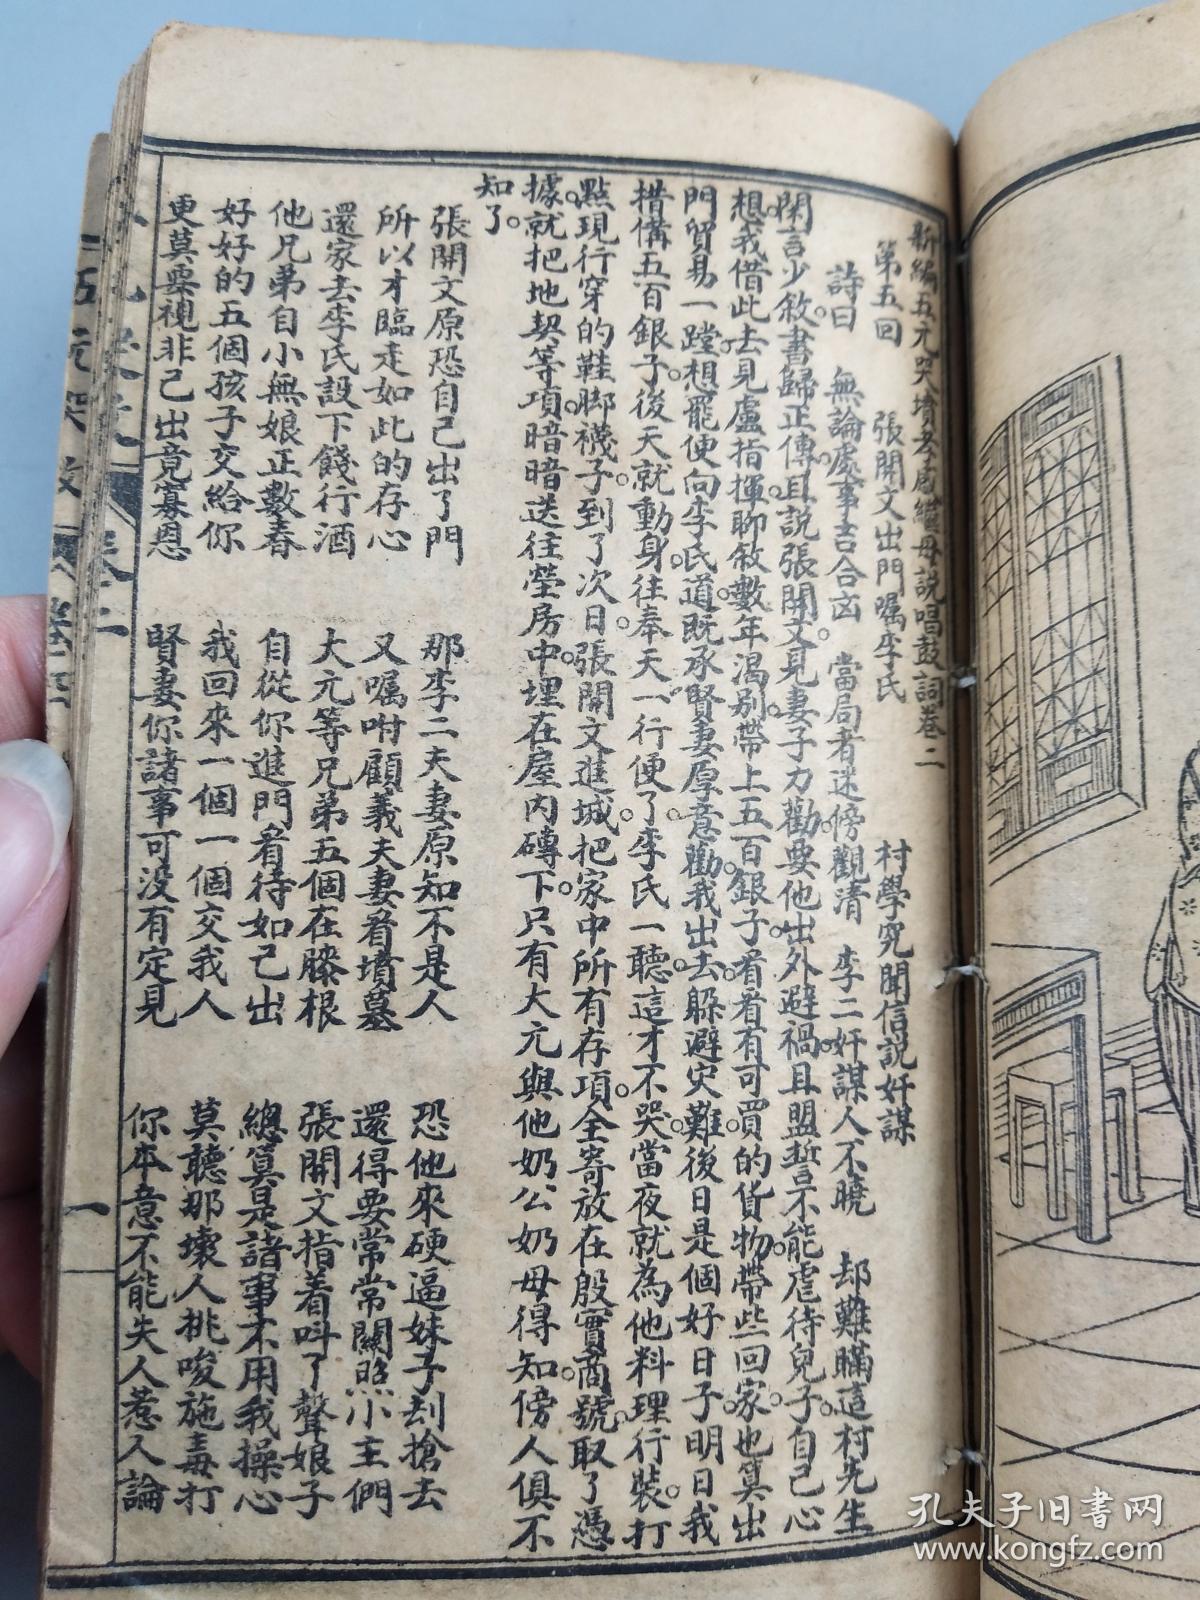 新編五元哭墳孝感繼母說唱鼓詞卷二
第五回　張開文出門囑李氏　村學究聞信說奸謀
詩曰　無論處事吉合凶　當局者迷傍觀清　李二奸謀人不曉　却難瞞這村先生
閑言少敘書歸正傳。且說張開文見妻子力勸要他出外避禍。且盟誓不能虐待兒子。自己心
想。我借此去見盧指揮聊敘數年渴别。帶上五百銀子看看有可買的貨物。帶些回家。也算出
門貿易一蹚。想罷便向李氏道既承賢妻厚意。勸我出去。躲避灾難。後日是個好日子。明日我
措備五百銀子。後天就動身。往奉天一行便了。李氏一聽這才不哭。當夜就為他料理行裝。打
點現行穿的鞋脚襪子。到了次日。張開文進城。把家中所有存項。全寄放在殷實商號。取了憑
據。就把地契等項暗暗送往塋房中。埋在屋内磚下。只有大元與他奶公奶母得知傍人俱不
知了。
張開文原恐自己出了門　那李二夫妻原知不是人　恐他來硬逼妹子刦搶去
所以才臨走如此的存心　又囑咐顧義夫妻看墳墓　還得要常常關照小主們
還家去李氏設下餞行酒　大元等兄弟五個在膝根　張開文指着叫了聲娘子
他兄弟自小無娘正數春　自從你進門看待如己出　總算是諸事不用我操心
好好的五個孩子交給你　我回來一個一個交我人　莫聽那壞人挑唆施毒打
更莫要視非己出竟寡恩　賢妻你諸事可没有定見　你本意不能失人惹人論
卷二
一
孔夫子旧書网
www.kongfz.com